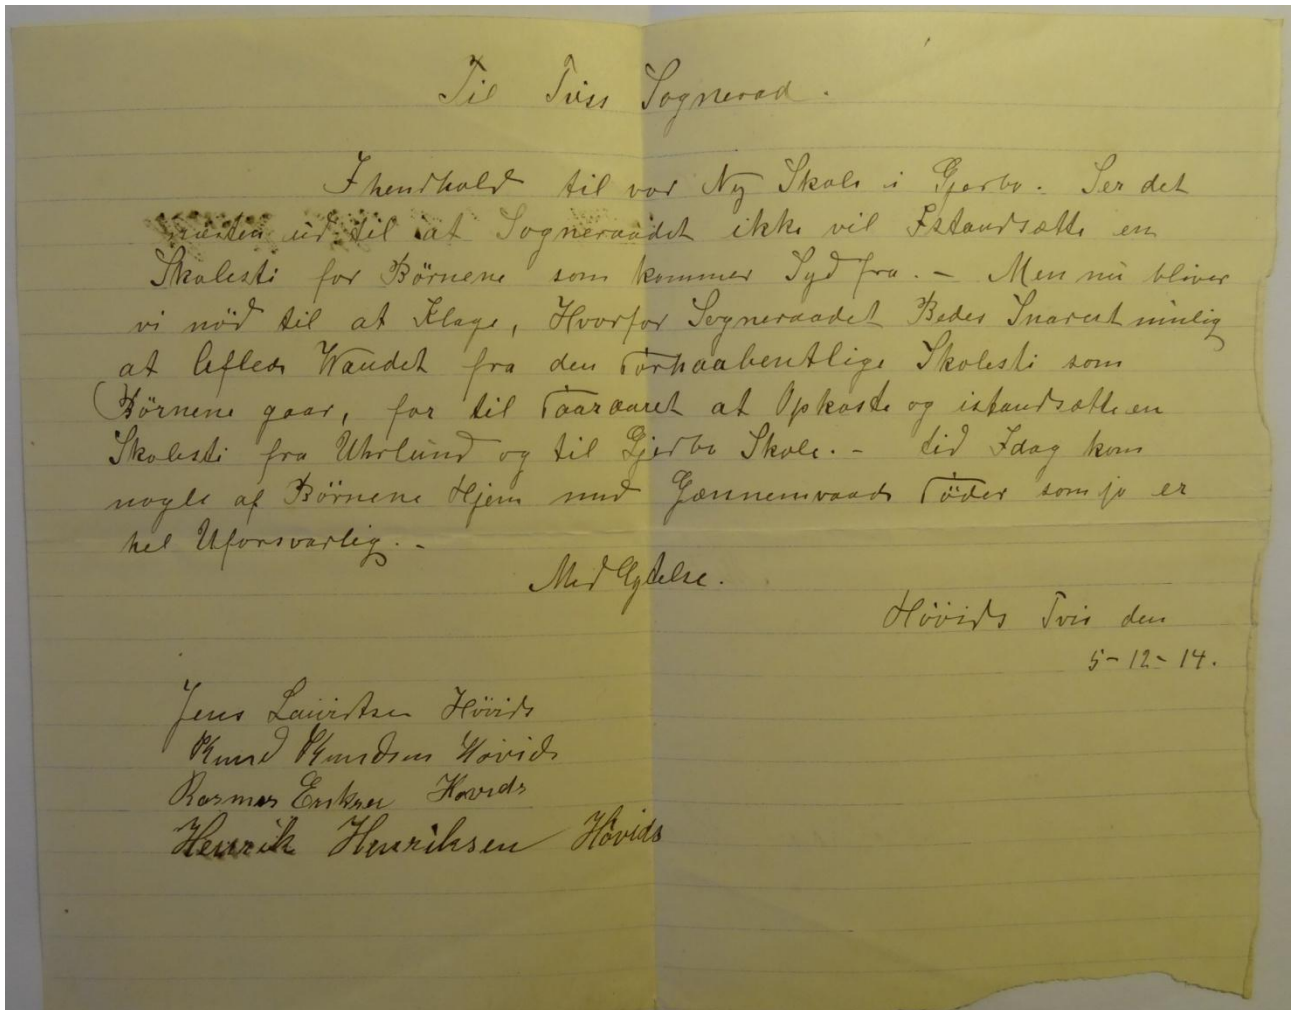 Til Tviss Sognerad.
I henhold til vor Ny Skole i Gjerbo. Ser det
næsten ud til at Sogneraadet ikke vil Istandsætte en
Skolesti for Börnene som kommer Syd fra. - Men nu bliver
vi nöd til at Klage, Hvorfor Sogneraadet Bedes Snarest mulig
at lefleda Wandet fra den Forhaabentlige Skolesti som
Börnene gaar, for til Foraaret at Opkaste og istandsætte en
Skolesti fra Uhrlund og til Gjerbo Skole. - tid Idag kom
nogle af Börnene Hjem med Gænnemvaade Föder som jo er
hel Uforsvarlig. -
Med Agtelse.
Hövids Tvis den
5-12-14.
Jens Lauridtsen Hövids
Knud Knudsen Hövids
Rasmus Eriksen Hovids
Henrik Henriksen Hövids